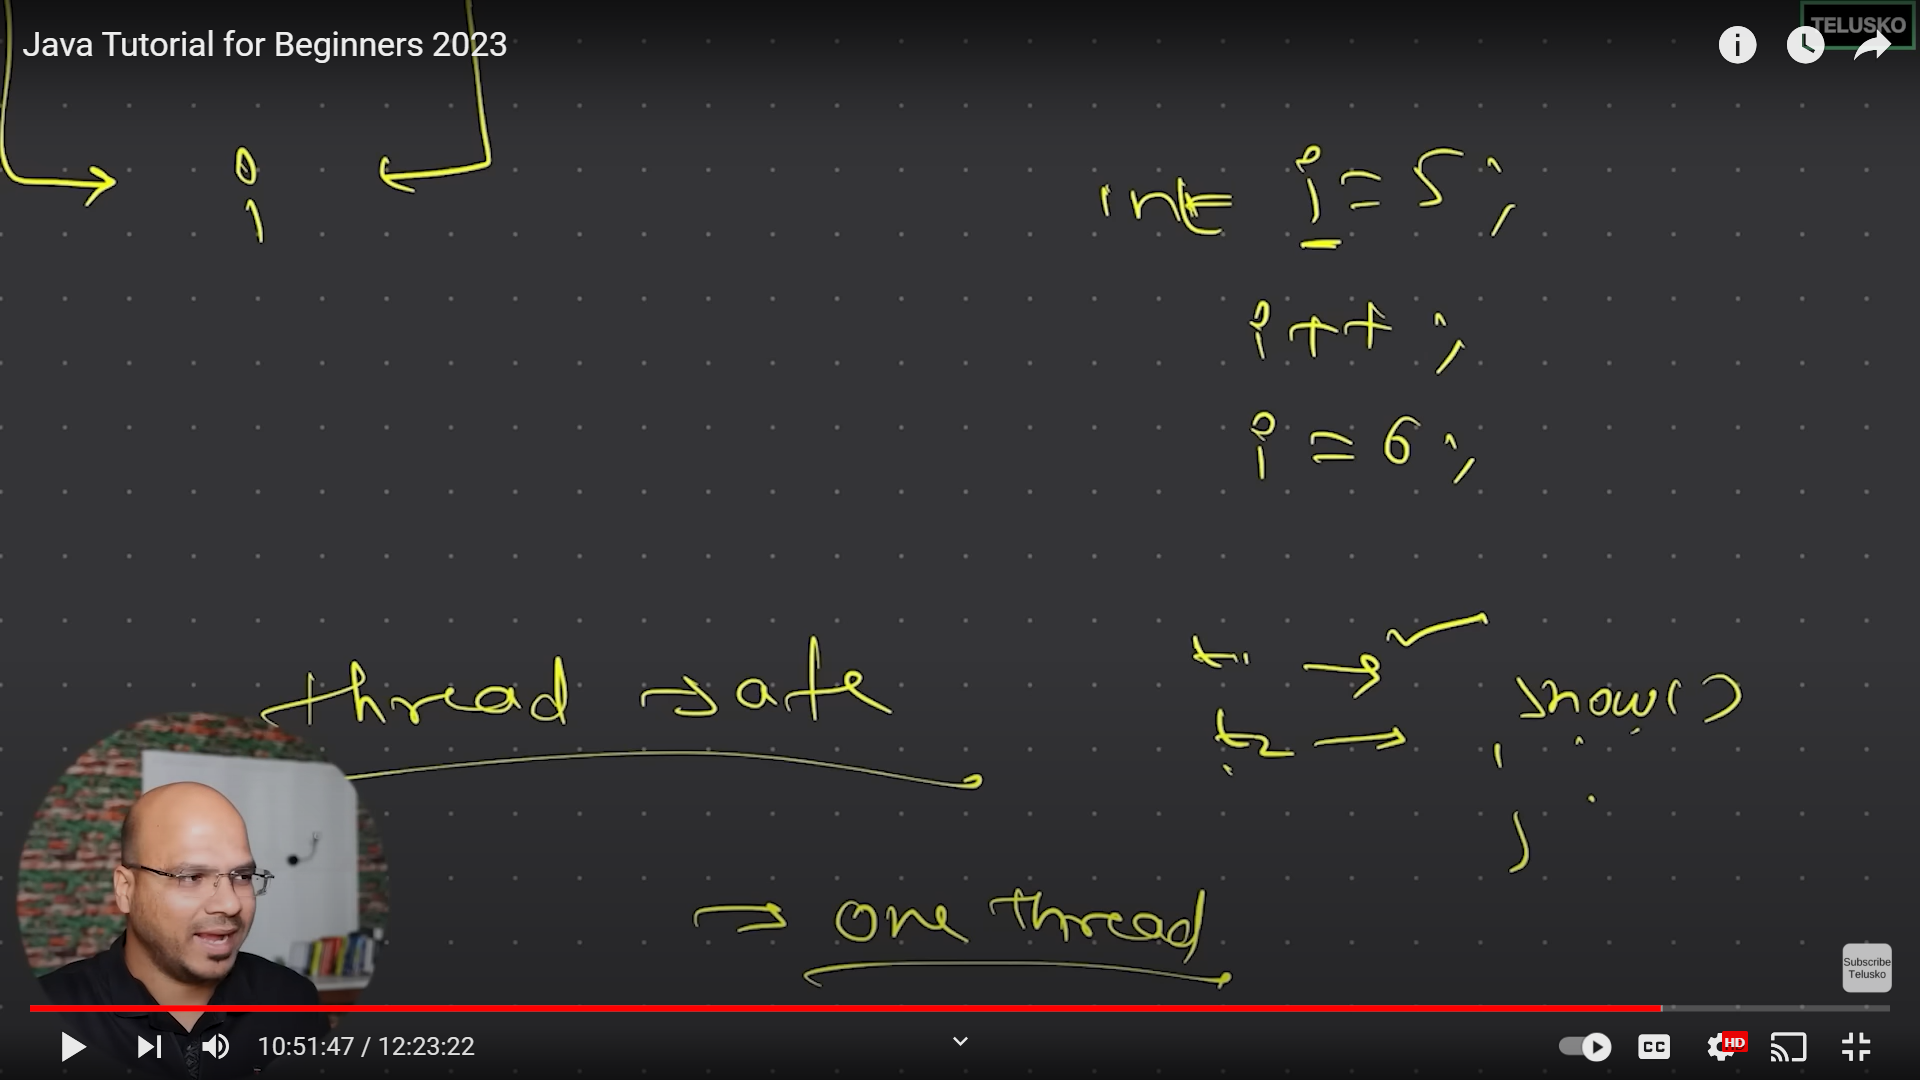 Java Tutorial for Beginners 2023
TELUSKO
i
int i = 5;
i++;
i = 6;
thread safe
t1 → show()
t2 →
→ one thread
Subscribe
Telusko
10:51:47 / 12:23:22
CC
HD